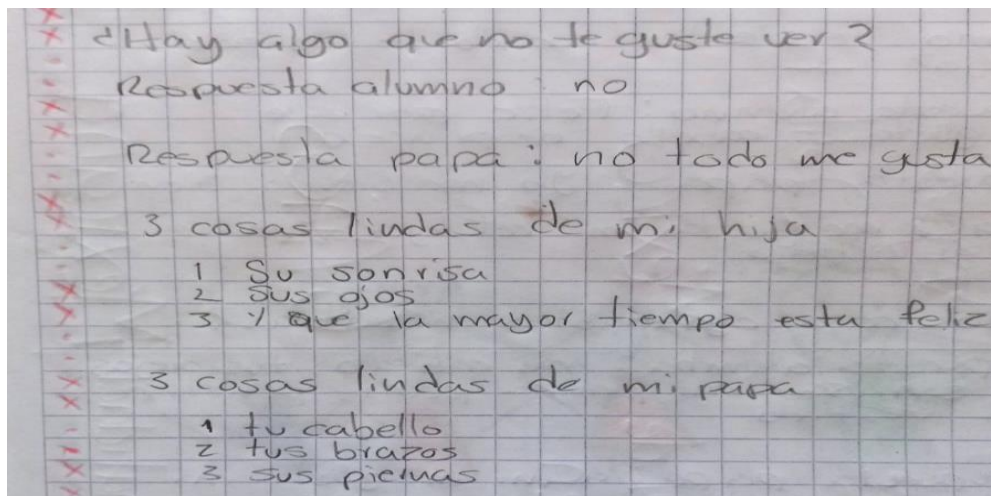 ¿Hay algo que no te guste ver?
Respuesta alumno : no
Respuesta papa : no todo me gusta
3 cosas lindas de mi hija
1 Su sonrisa
2 sus ojos
3 y que la mayor tiempo esta feliz
3 cosas lindas de mi papa
1 tu cabello
2 tus brazos
3 sus piernas